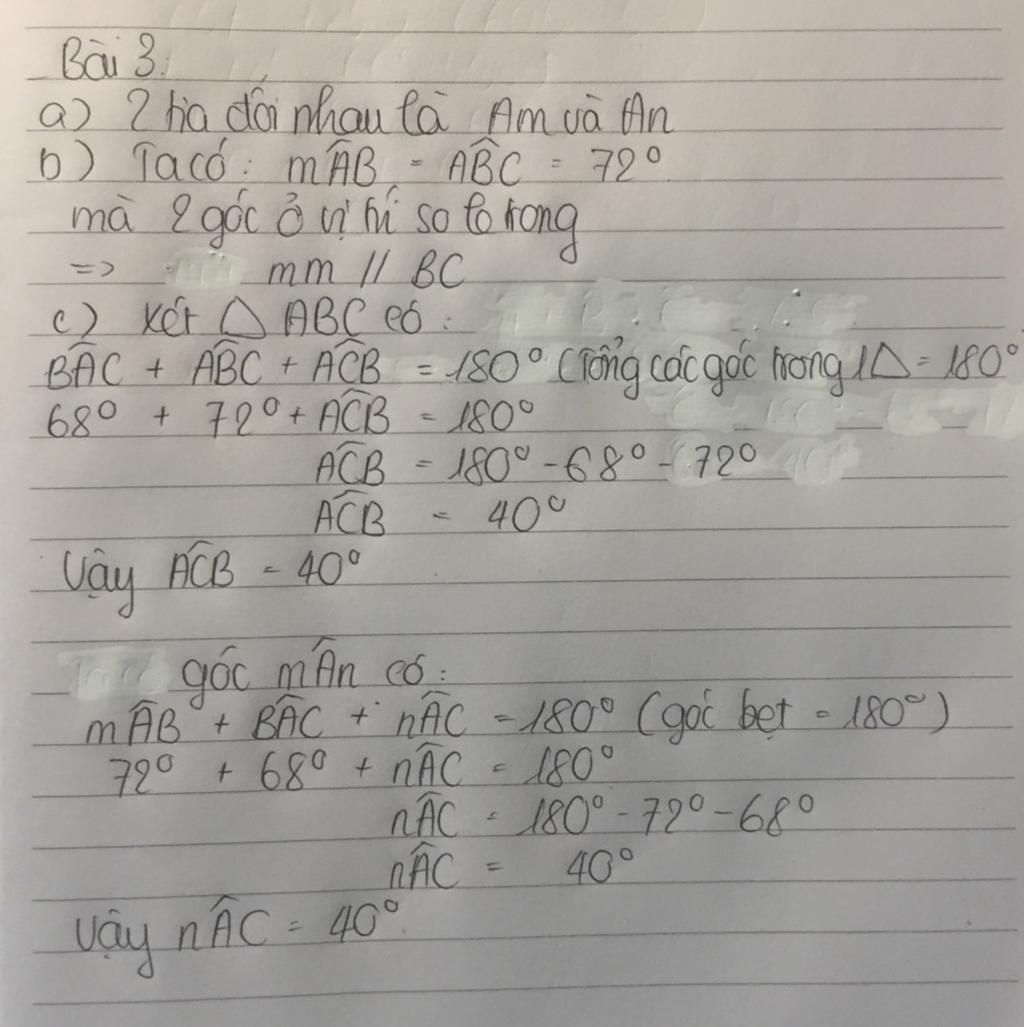 Bài 3:
a) 2 tia đối nhau là Am và An
b) Ta có: mÂB = AB̂C = 72°
mà 2 góc ở vị trí so le trong
=> mm // BC
c) Xét △ ABC có:
BÂC + AB̂C + AĈB = 180° (Tổng các góc trong 1△ = 180°
68° + 72° + AĈB = 180°
AĈB = 180° - 68° - 72°
AĈB = 40°
Vậy AĈB = 40°
góc mÂn có:
mÂB + BÂC + nÂC = 180° (góc bẹt = 180°)
72° + 68° + nÂC = 180°
nÂC = 180° - 72° - 68°
nÂC = 40°
Vậy nÂC = 40°.